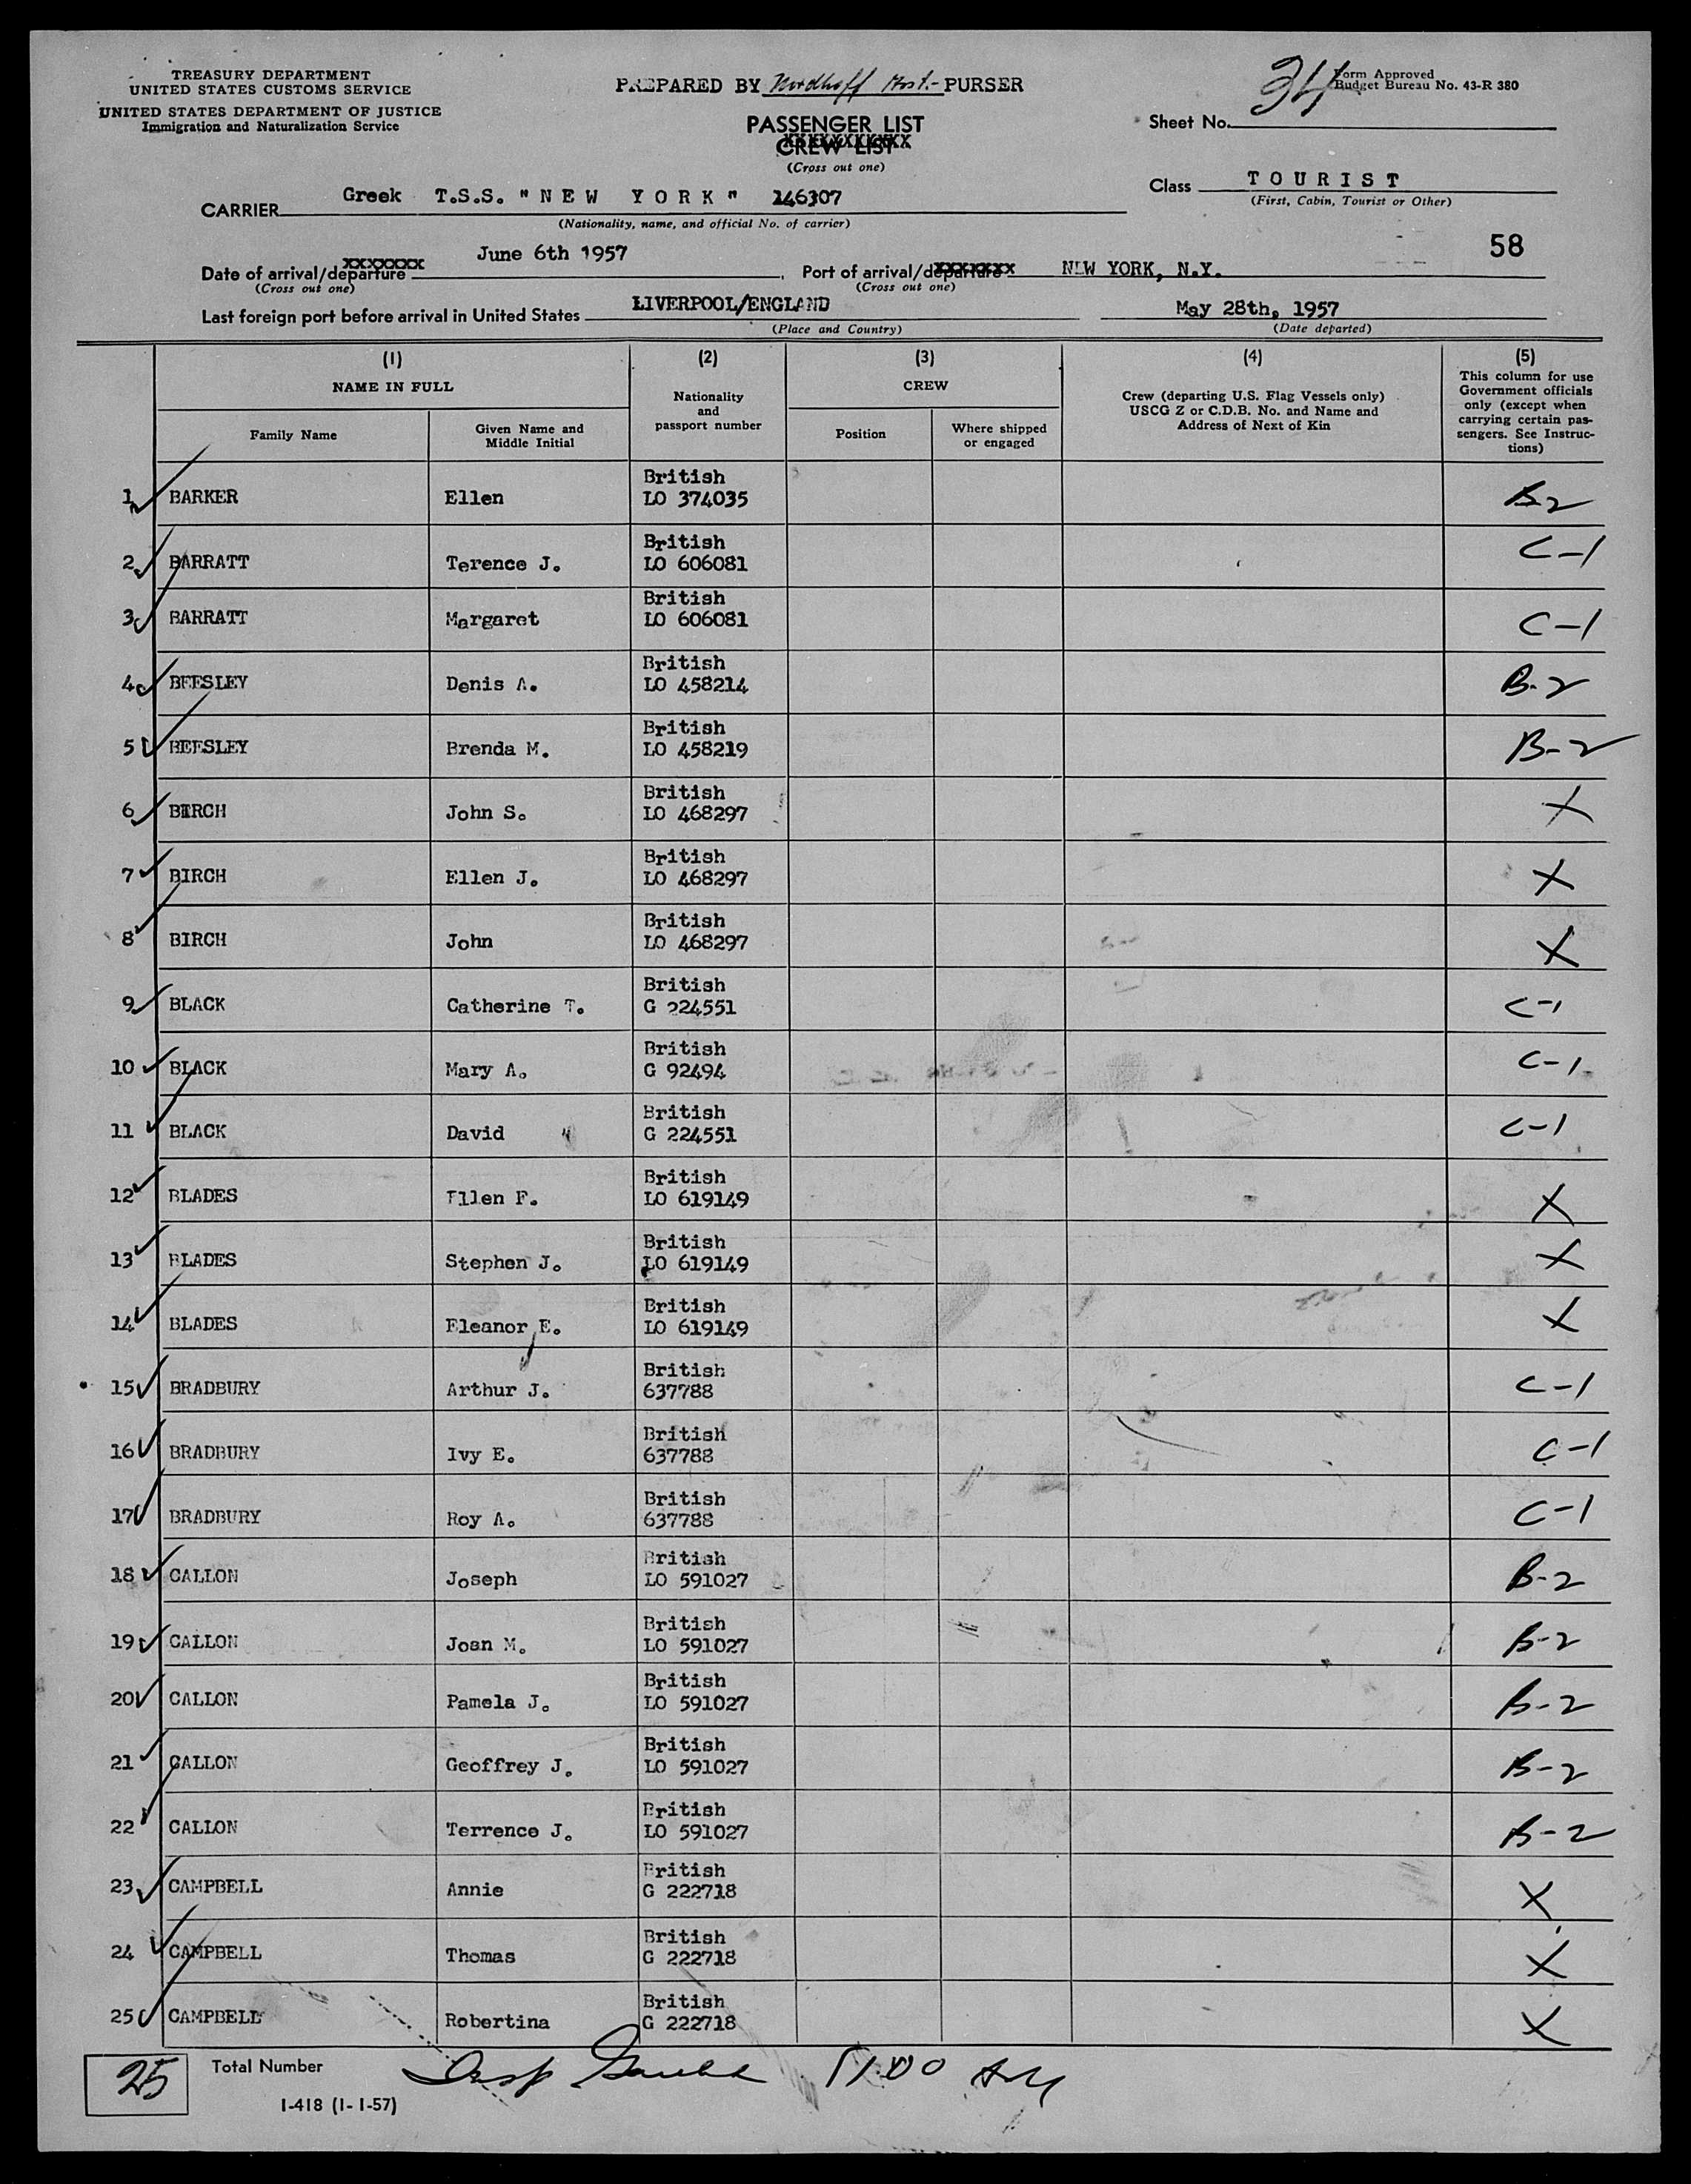 TREASURY DEPARTMENT
UNITED STATES CUSTOMS SERVICE
UNITED STATES DEPARTMENT OF JUSTICE
Immigration and Naturalization Service
PREPARED BY Nordhoff PURSER
PASSENGER LIST
CREW LIST
(Cross out one)
34
Form Approved
Budget Bureau No. 43-R 380
Sheet No.
Class TOURIST
(First, Cabin, Tourist or Other)
CARRIER Greek T.S.S. "NEW YORK" 146307
(Nationality, name, and official No. of carrier)
58
Date of arrival/departure June 6th 1957, Port of arrival/departure NEW YORK, N.Y.
(Cross out one) (Cross out one)
Last foreign port before arrival in United States LIVERPOOL/ENGLAND May 28th, 1957
(Place and Country) (Date departed)
(1) (2) (3) (4) (5)
NAME IN FULL
Family Name
Given Name and
Middle Initial
Nationality
and
passport number
CREW
Position
Where shipped
or engaged
Crew (departing U.S. Flag Vessels only)
USCG Z or C.D.B. No. and Name and
Address of Next of Kin
This column for use
Government officials
only (except when
carrying certain pas-
sengers. See Instruc-
tions)
British
1 BARKER Ellen LO 374035 B2
British
2 BARRATT Terence J. LO 606081 C-1
British
3 BARRATT Margaret LO 606081 C-1
British
4 BEESLEY Denis A. LO 458214 B-2
British
5 BEESLEY Brenda M. LO 458219 B-2
British
6 BIRCH John S. LO 468297 X
British
7 BIRCH Ellen J. LO 468297 X
British
8 BIRCH John LO 468297 X
British
9 BLACK Catherine T. G 224551 C-1
British
10 BLACK Mary A. G 92494 C-1
British
11 BLACK David G 224551 C-1
British
12 BLADES Ellen F. LO 619149 X
British
13 BLADES Stephen J. LO 619149 X
British
14 BLADES Eleanor E. LO 619149 X
British
15 BRADBURY Arthur J. 637788 C-1
British
16 BRADBURY Ivy E. 637788 C-1
British
17 BRADBURY Roy A. 637788 C-1
British
18 CALLON Joseph LO 591027 B-2
British
19 CALLON Joan M. LO 591027 B-2
British
20 CALLON Pamela J. LO 591027 B-2
British
21 CALLON Geoffrey J. LO 591027 B-2
British
22 CALLON Terrence J. LO 591027 B-2
British
23 CAMPBELL Annie G 222718 X
British
24 CAMPBELL Thomas G 222718 X
British
25 CAMPBELL Robertina G 222718 X
25 Total Number
I-418 (1-1-57)